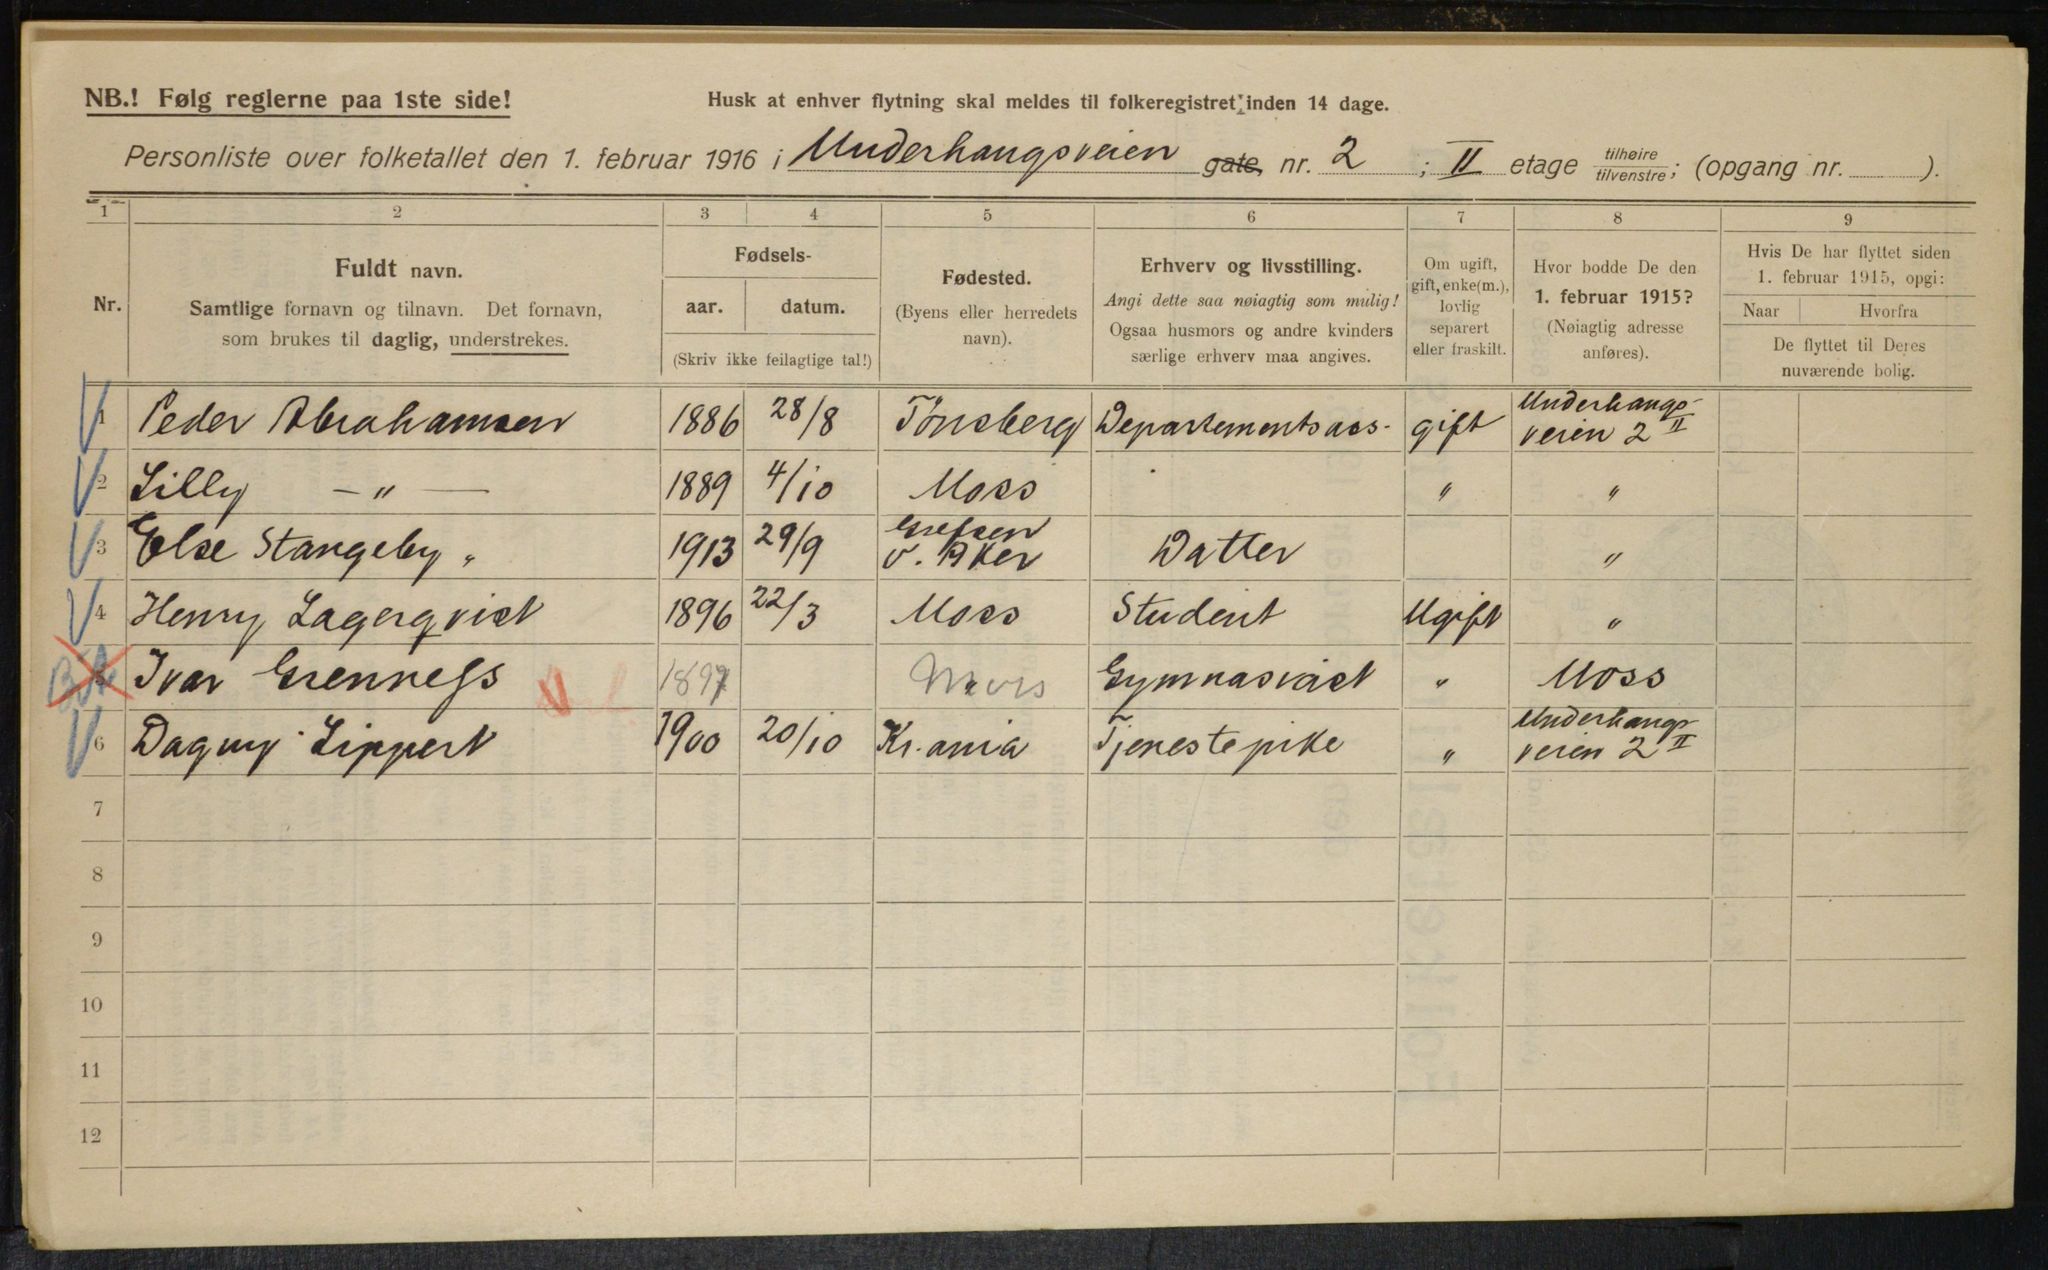 NB.! Følg reglerne paa 1ste side!
Husk at enhver flytning skal meldes til folkeregistret inden 14 dage.
Personliste over folketallet den 1. februar 1916 i Underhaugsveien gate nr. 2 ; II etage tilhøire tilvenstre; (opgang nr. ).
1 2 3 4 5 6 7 8 9
Nr.
Fuldt navn.
Samtlige fornavn og tilnavn. Det fornavn,
som brukes til daglig, understrekes.
Fødsels-
aar. datum.
(Skriv ikke feilagtige tal!)
Fødested.
(Byens eller herredets
navn).
Erhverv og livsstilling.
Angi dette saa nøiagtig som mulig!
Ogsaa husmors og andre kvinders
særlige erhverv maa angives.
Om ugift,
gift, enke(m.),
lovlig
separert
eller fraskilt.
Hvor bodde De den
1. februar 1915?
(Nøiagtig adresse
anføres).
Hvis De har flyttet siden
1. februar 1915, opgi:
Naar Hvorfra
De flyttet til Deres
nuværende bolig.
1 Peder Abrahamsen 1886 28/8 Tönsberg Departementsass- gift Underhaugs-
veien 2 II
2 Lilly —"— 1889 4/10 Moss " "
3 Else Stangeby " 1913 29/9 Grefsen
v. Aker Datter "
4 Henry Lagerqvist 1896 22/3 Moss Student Ugift "
Ivar Grenness 1897 Gymnasiast " Moss
6 Dagny Lippert 1900 20/10 Kr.ania Tjenestepike " Underhaugs-
veien 2 II
7
8
9
10
11
12